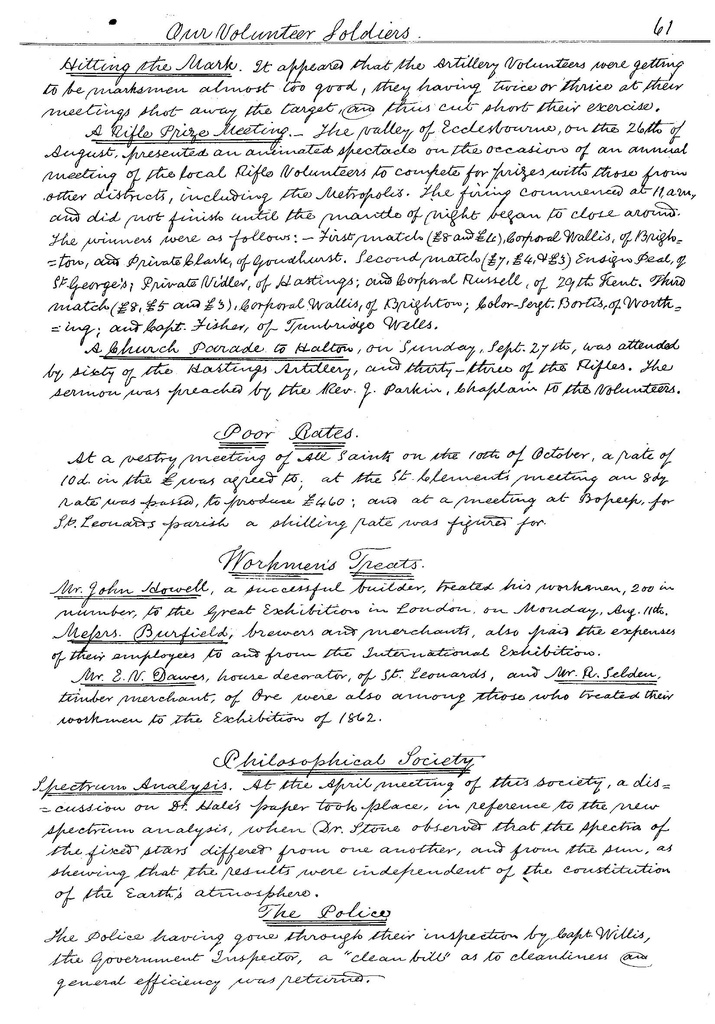 Our Volunteer Soldiers. 61
Hitting the Mark. It appeared that the Artillery Volunteers were getting
to be marksmen almost too good, they having twice or thrice at their
meetings shot away the target, and thus cut short their exercise.
A Rifle Prize Meeting. — The valley of Ecclesbourne, on the 26th of
August, presented an animated spectacle on the occasion of an annual
meeting of the local Rifle Volunteers to compete for prizes with those from
other districts, including the Metropolis. The firing commenced at 11 a.m.,
and did not finish until the mantle of night began to close around.
The winners were as follows: — First match (£8 and £4), Corporal Wallis, of Brigh=
=ton, and Private Clark, of Goudhurst. Second match (£7, £4, & £3) Ensign Peal, of
St George's; Private Vidler, of Hastings; and Corporal Russell, of 29th Kent. Third
match (£8, £5 and £3), Corporal Wallis, of Brighton; Color-Sergt. Bortis, of Worth=
=ing; and Capt. Fisher, of Tunbridge Wells.
A Church Parade to Halton, on Sunday, Sept. 27th, was attended
by sixty of the Hastings Artillery, and thirty-three of the Rifles. The
sermon was preached by the Rev. J. Parkin, Chaplain to the Volunteers.
Poor Rates.
At a vestry meeting of All Saints on the 10th of October, a rate of
10d in the £ was agreed to; at the St. Clements meeting an 8d
rate was passed, to produce £460; and at a meeting at Bopeep, for
St. Leonards parish a shilling rate was figured for.
Workmen's Treats.
Mr. John Howell, a successful builder, treated his workmen, 200 in
number, to the Great Exhibition in London, on Monday, Aug. 11th.
Messrs. Burfield, brewers and merchants, also paid the expenses
of their employees to and from the International Exhibition.
Mr. E. V. Dawes, house decorator, of St. Leonards, and Mr. R. Selden,
timber merchant, of Ore were also among those who treated their
workmen to the Exhibition of 1862.
Philosophical Society
Spectrum Analysis. At the April meeting of this society, a dis=
=cussion on Dr. Hale's paper took place, in reference to the new
spectrum analysis, when Dr. Stone observed that the spectra of
the fixed stars differed from one another, and from the sun, as
shewing that the results were independent of the constitution
of the Earth's atmosphere.
The Police
The Police having gone through their inspection by Capt Willis,
the Government Inspector, a "clean bill" as to cleanliness and
general efficiency was returned.